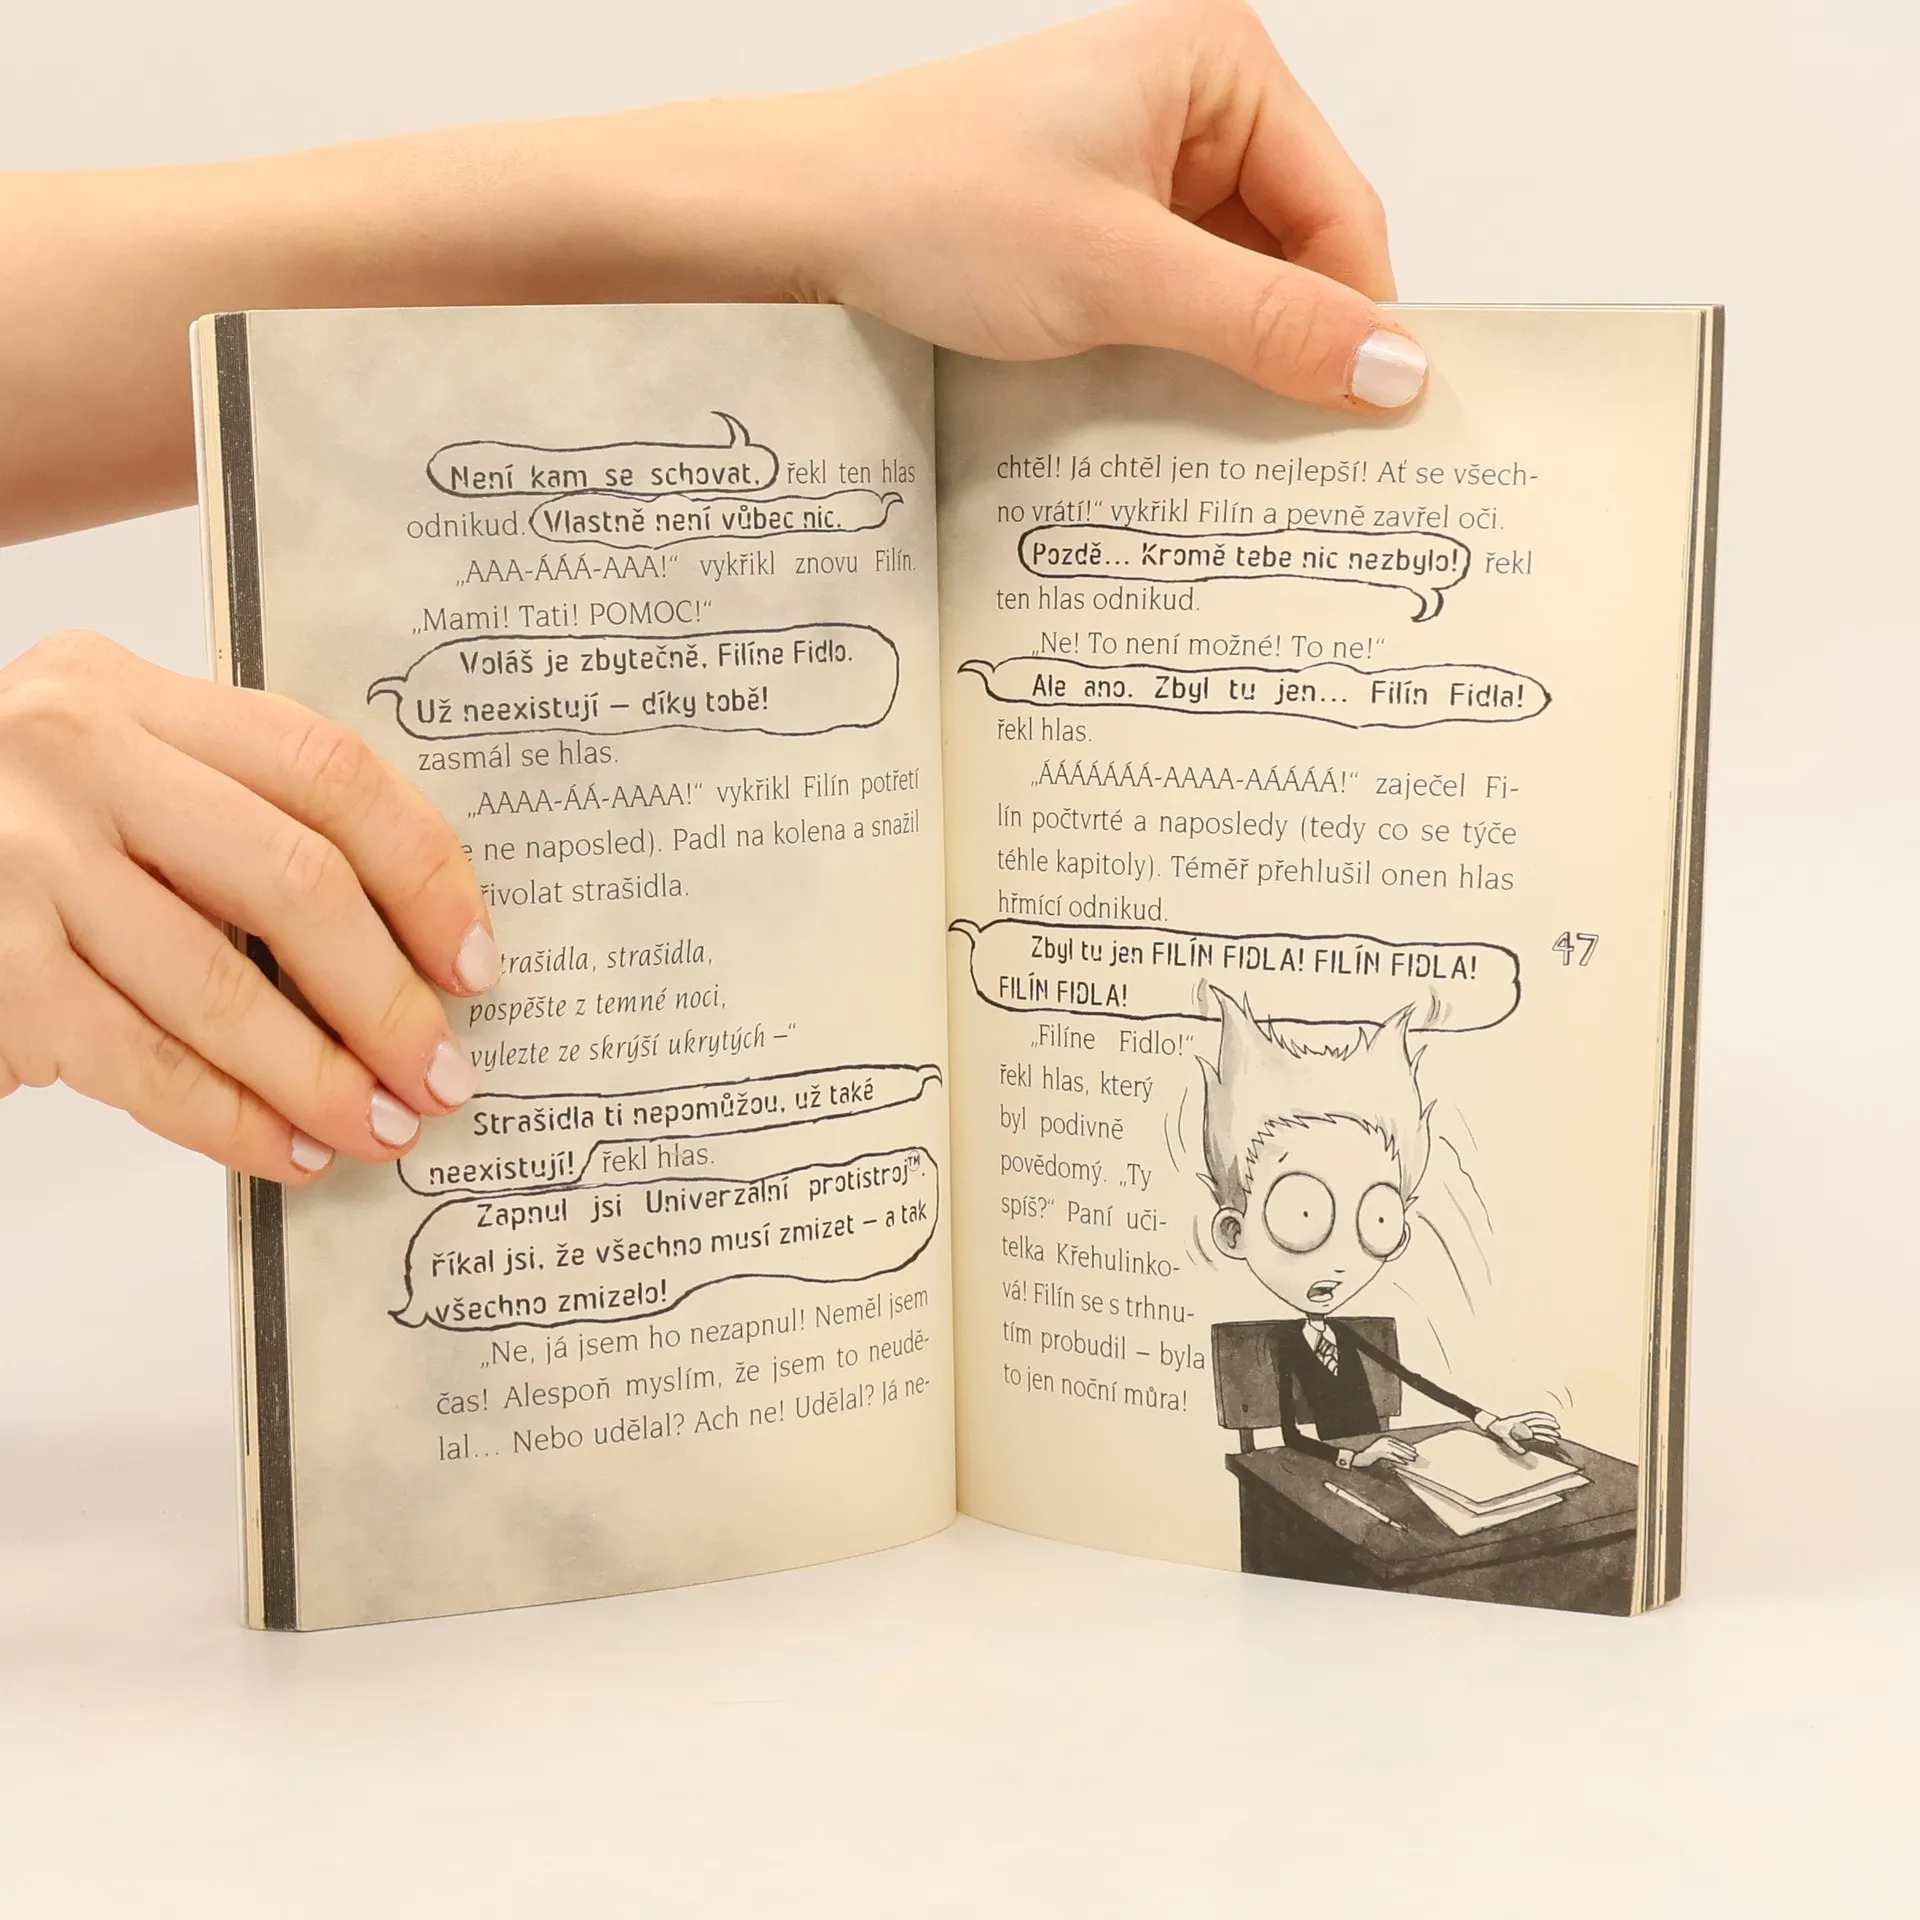 Není kam se schovat, řekl ten hlas
odnikud. Vlastně není vůbec nic.
„AAA-ÁÁÁ-AAA!“ vykřikl znovu Filín.
„Mami! Tati! POMOC!“
Voláš je zbytečně, Filíne Fidlo.
Už neexistují – díky tobě!
zasmál se hlas.
„AAAA-ÁÁ-AAAA!“ vykřikl Filín potřetí
ne naposled). Padl na kolena a snažil
strašidla.
strašidla,
pospěšte z temné noci,
vylezte ze skrýší ukrytých –“
Strašidla ti nepomůžou, už také
neexistují! řekl hlas.
Zapnul jsi Univerzální protistroj™.
říkal jsi, že všechno musí zmizet – a tak
všechno zmizelo!
„Ne, já jsem ho nezapnul! Neměl jsem
čas! Alespoň myslím, že jsem to neudě-
lal... Nebo udělal? Ach ne! Udělal? Já ne-
chtěl! Já chtěl jen to nejlepší! Ať se všech-
no vrátí!“ vykřikl Filín a pevně zavřel oči.
Pozdě... Kromě tebe nic nezbylo! řekl
ten hlas odnikud.
„Ne! To není možné! To ne!“
Ale ano. Zbyl tu jen... Filín Fidla!
řekl hlas.
„ÁÁÁÁÁÁÁ-AAAA-AÁÁÁÁ!“ zaječel Fi-
lín počtvrté a naposledy (tedy co se týče
téhle kapitoly). Téměř přehlušil onen hlas
hřmící odnikud.
Zbyl tu jen FILÍN FIDLA! FILÍN FIDLA!
FILÍN FIDLA!
47
„Filíne Fidlo!“
řekl hlas, který
byl podivně
povědomý. „Ty
spíš?“ Paní uči-
telka Křehulinko-
vá! Filín se s trhnu-
tím probudil – byla
to jen noční můra!